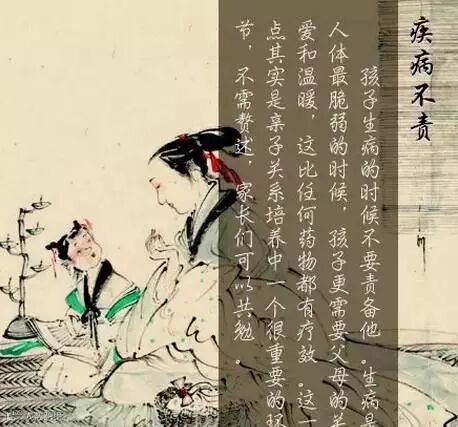 疾病不责
孩子生病的时候不要责备他。生病是
人体最脆弱的时候，孩子更需要父母的关
爱和温暖，这比任何药物都有疗效。这一
点其实是亲子关系培养中一个很重要的环
节，不需赘述，家长们可以共勉。